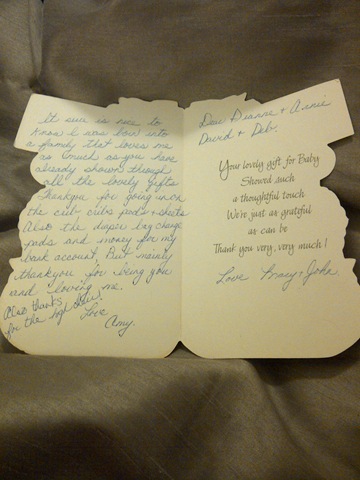 It sure is nice to
know I was born into
a family that loves me
as much as you have
already shown through
all the lovely gifts.
Thankyou for going in on
the crib, crib pads & sheets
Also the diaper bag change
pads and money for my
bank account. But mainly
thankyou for being you
and loving me.
Also thanks
for the high chair!
Love
Amy.
Dear Dianne & Annie
David & Deb.
Your lovely gift for Baby
Showed such
a thoughtful touch
We're just as grateful
as can be
Thank you very, very much!
Love Tracy & John.